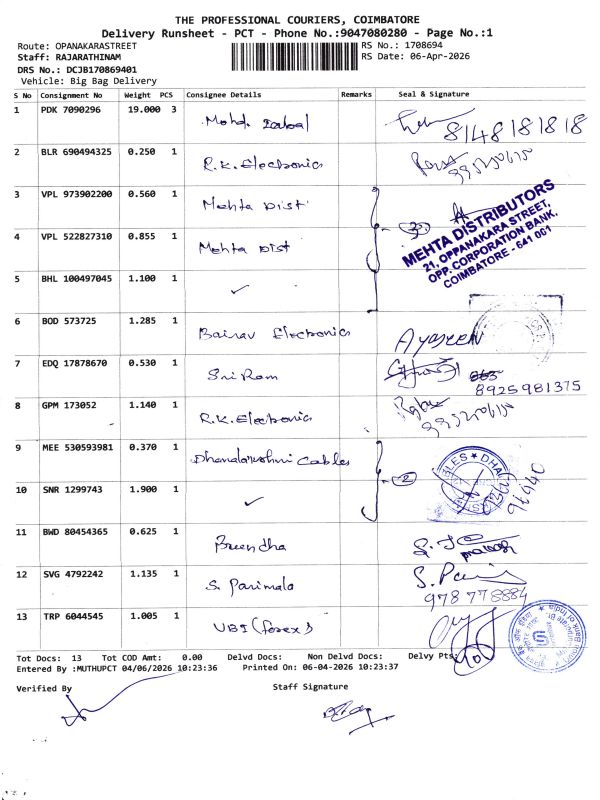 THE PROFESSIONAL COURIERS, COIMBATORE
Delivery Runsheet - PCT - Phone No.:9047080280 - Page No.:1
Route: OPANAKARASTREET RS No.: 1708694
Staff: RAJARATHINAM RS Date: 06-Apr-2026
DRS No.: DCJB170869401
Vehicle: Big Bag Delivery
S No Consignment No Weight PCS Consignee Details Remarks Seal & Signature
1 PDK 7090296 19.000 3 Mohd. 8148181818
2 BLR 690494325 0.250 1 R.K. Electronics
3 VPL 973902200 0.560 1 Mehta Dist
4 VPL 522827310 0.855 1 Mehta Dist 3
MEHTA DISTRIBUTORS
21, OPPANAKARA STREET,
OPP. CORPORATION BANK,
COIMBATORE - 641 001
5 BHL 100497045 1.100 1 ✓
6 BOD 573725 1.285 1 Bairav Electronics Ayaseen
7 EDQ 17878670 0.530 1 Sri Ram 8925981375
8 GPM 173052 1.140 1 R.K. Electronics
9 MEE 530593981 0.370 1 Dhanalakshmi Cables 2
10 SNR 1299743 1.900 1 ✓
11 BWD 80454365 0.625 1 Brendha
12 SVG 4792242 1.135 1 S. Parimala S. Pari
978 778884
13 TRP 6044545 1.005 1 UBI (forex)
Tot Docs: 13 Tot COD Amt: 0.00 Delvd Docs: Non Delvd Docs: Delvy Pts: 10
Entered By :MUTHUPCT 04/06/2026 10:23:36 Printed On: 06-04-2026 10:23:37
Verified By Staff Signature